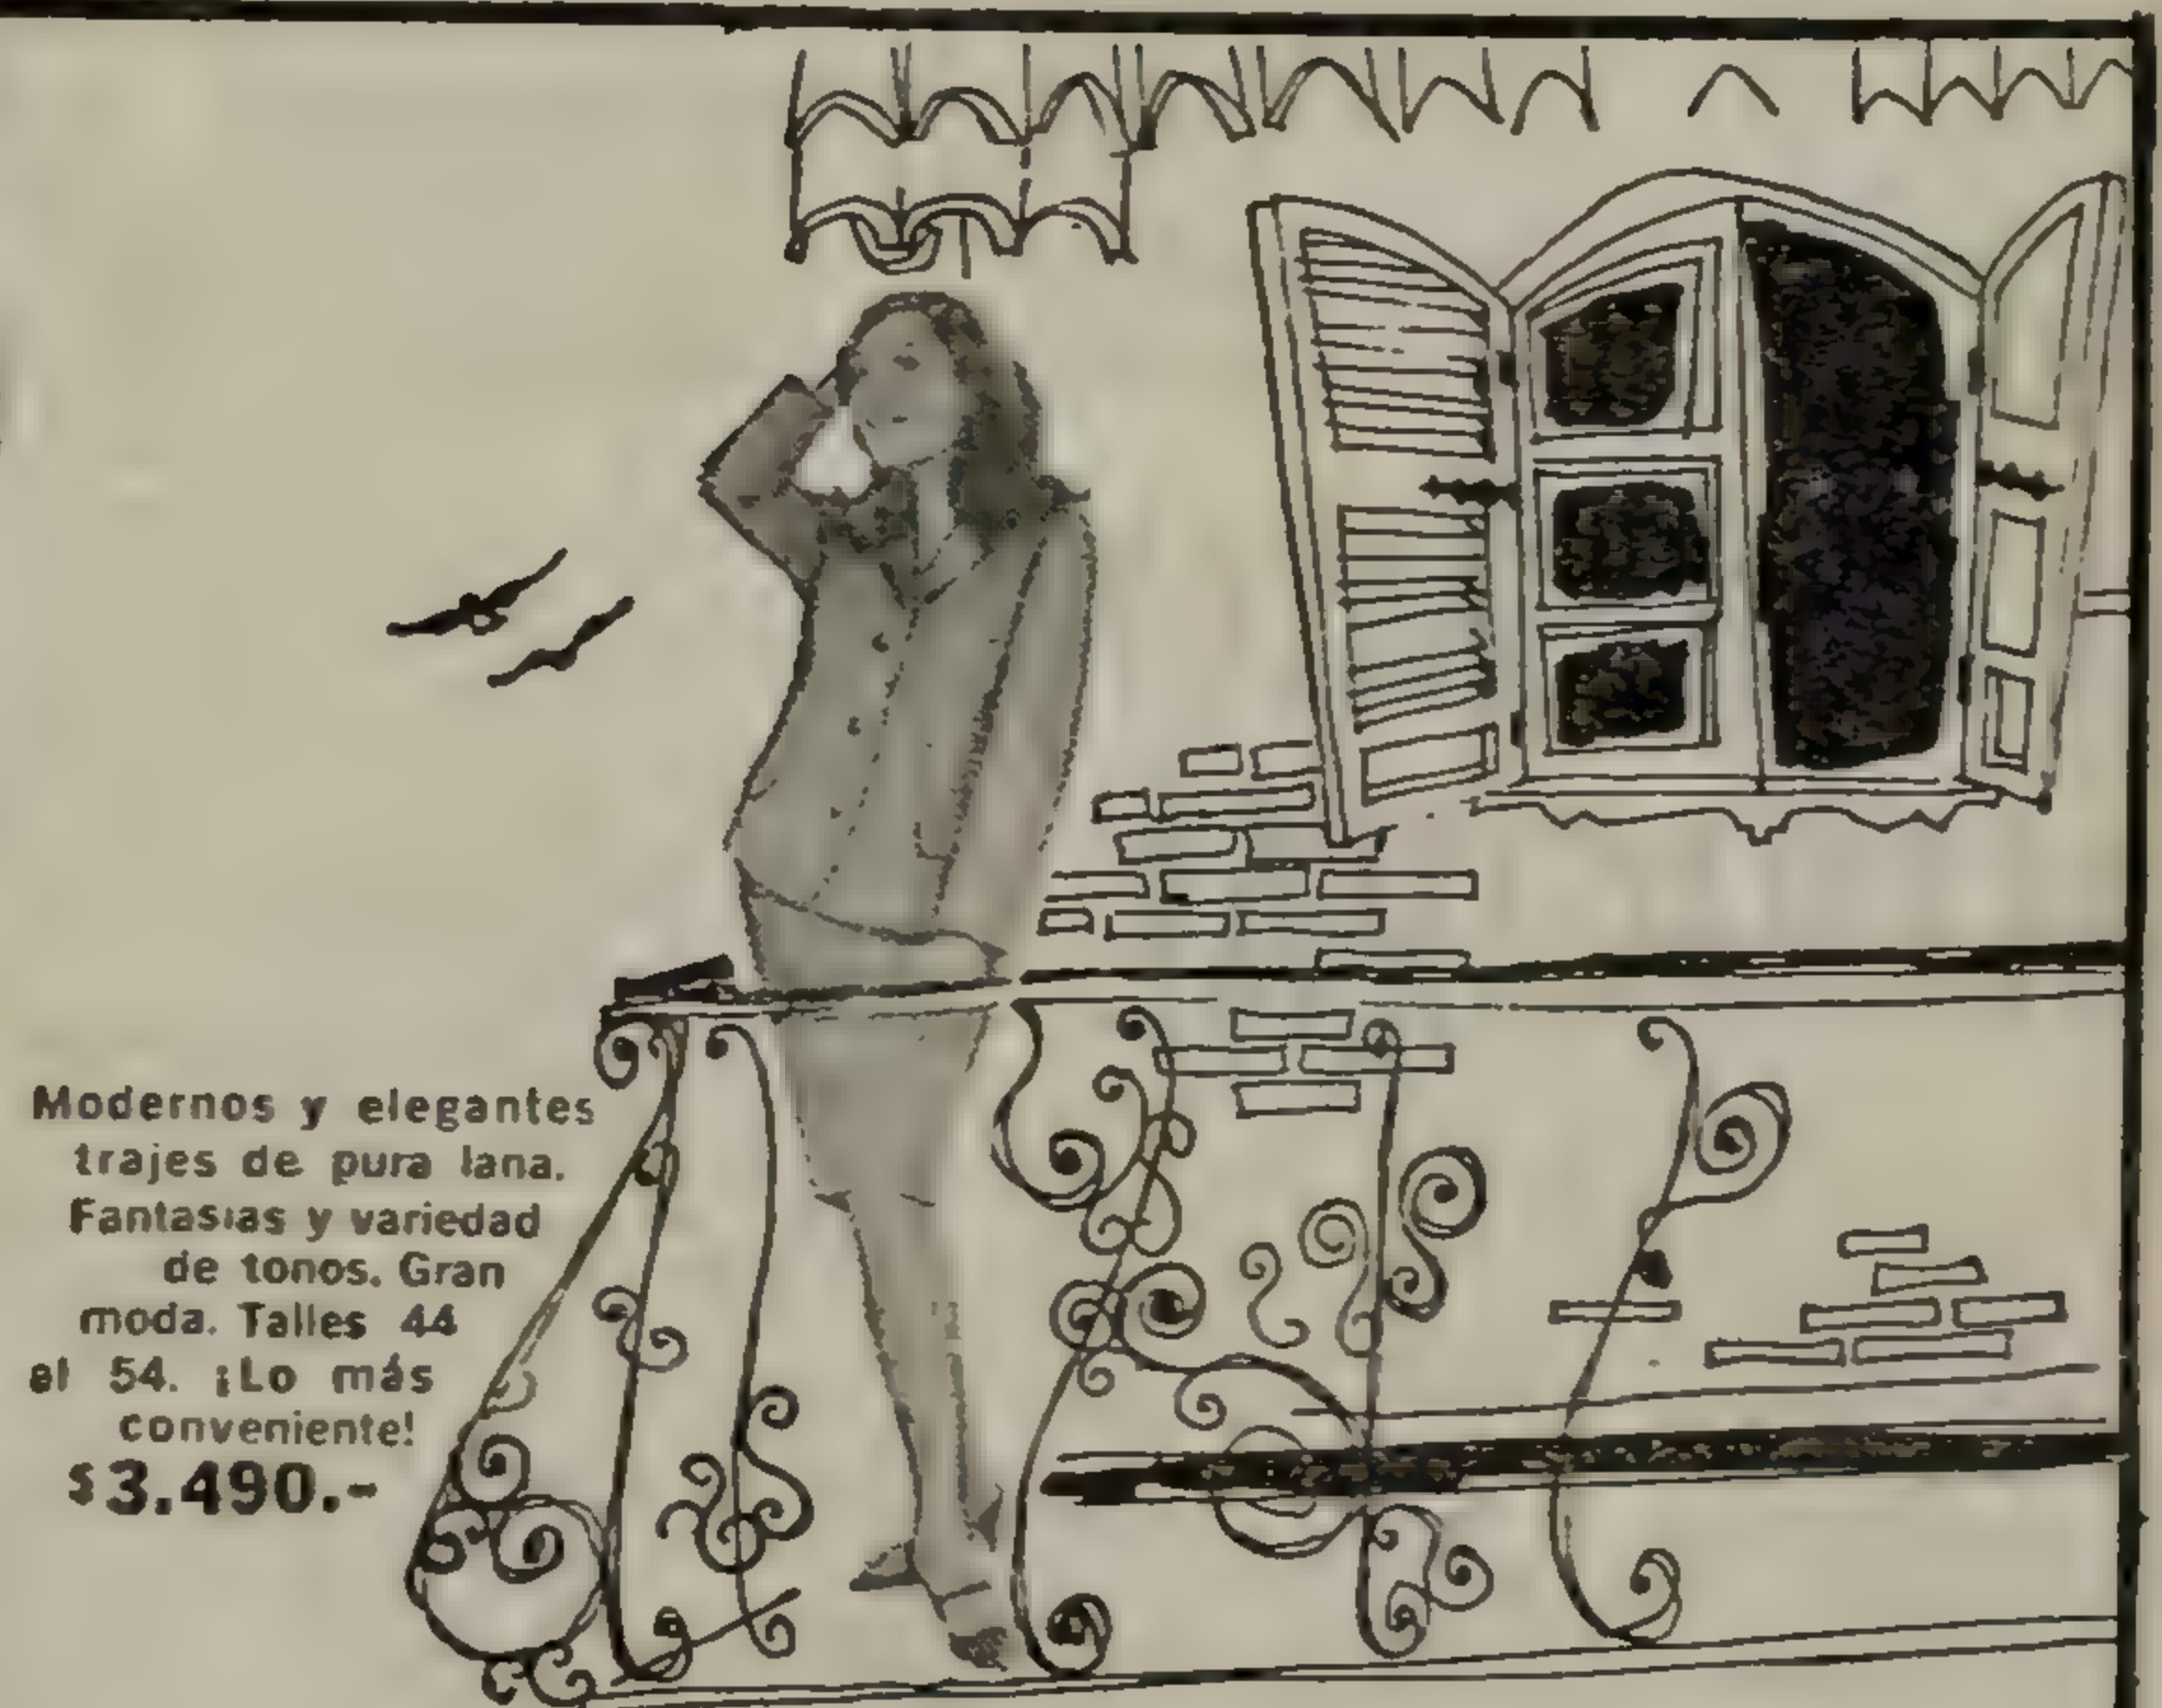 Modernos y elegantes
trajes de pura lana.
Fantasías y variedad
de tonos. Gran
moda. Talles 44
al 54. ¡Lo más
conveniente!
$3.490.-